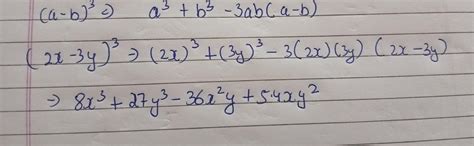 (a-b)³ ⇒ a³ + b³ - 3ab(a-b)
(2x-3y)³ ⇒ (2x)³ + (3y)³ - 3(2x)(3y) (2x-3y)
⇒ 8x³ + 27y³ - 36x²y + 54xy²